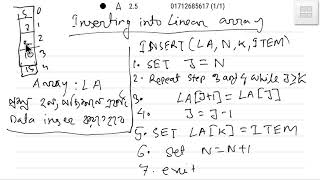 A 2.5 01712685617 (1/1)
Inserting into Linear array
5 0
1
2
10 3
15 4
Array : LA
INSERT(LA, N, K, ITEM)
1. SET J = N
2. Repeat step 3 and 4 while J≥K
3. LA[J+1] = LA[J]
4. J = J-1
5. SET LA[K] = ITEM
6. Set N = N+1
7. exit